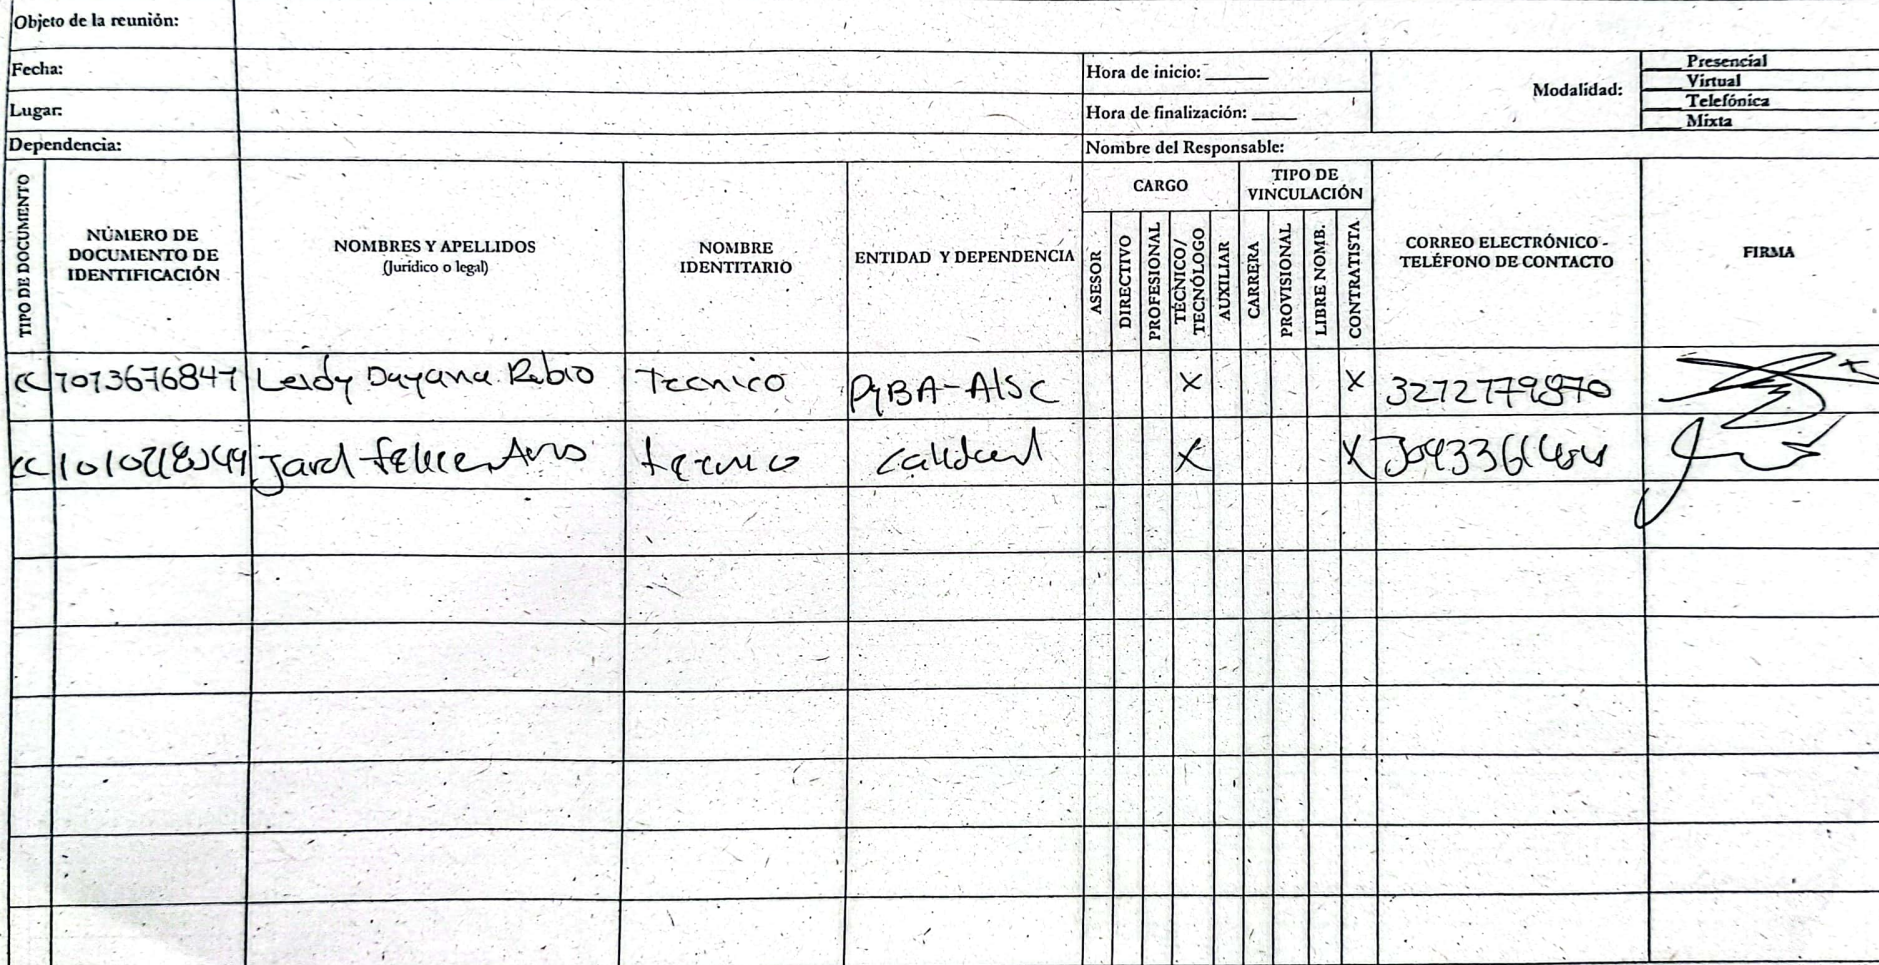 Objeto de la reunión:
Fecha:
Hora de inicio: ______
Modalidad:
____ Presencial
____ Virtual
____ Telefónica
____ Mixta
Lugar:
Hora de finalización: _____
Dependencia:
Nombre del Responsable:
TIPO DE DOCUMENTO
NÚMERO DE
DOCUMENTO DE
IDENTIFICACIÓN
NOMBRES Y APELLIDOS
(Jurídico o legal)
NOMBRE
IDENTITARIO
ENTIDAD Y DEPENDENCIA
CARGO
ASESOR
DIRECTIVO
PROFESIONAL
TÉCNICO/
TECNÓLOGO
AUXILIAR
TIPO DE
VINCULACIÓN
CARRERA
PROVISIONAL
LIBRE NOMB.
CONTRATISTA
CORREO ELECTRÓNICO -
TELÉFONO DE CONTACTO
FIRMA
CC 1013676847 Leidy Dayana Rubio Tecnico PyBA-AISC X X 3212779870
CC tecnico calidad X X